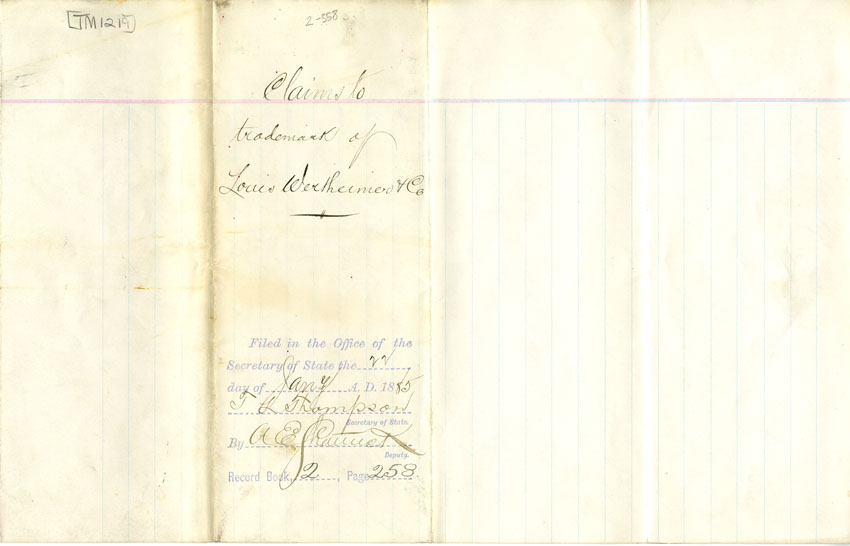 [TM1219]
2-358
Claims to
trademark of
Louis Wertheimer & Co
Filed in the Office of the
Secretary of State the 22
day of Jany A. D. 1885
T L Thompson
Secretary of State.
By A E Shattuck
Deputy.
Record Book, 2, Page 258